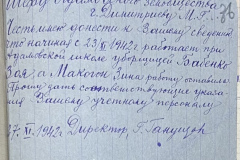 г. Димитриеву М. Г.
Честь имею донести к Вашему сведению,
что начиная с 23/XI 1942 г. работает при
школе уборщицей Бабенко
Зоя, а Макогон Зина работу оставила.
Прошу дать соответствующие указа-
ния Вашему учетному персоналу
27/XI. 1942 г. Директор, Г.